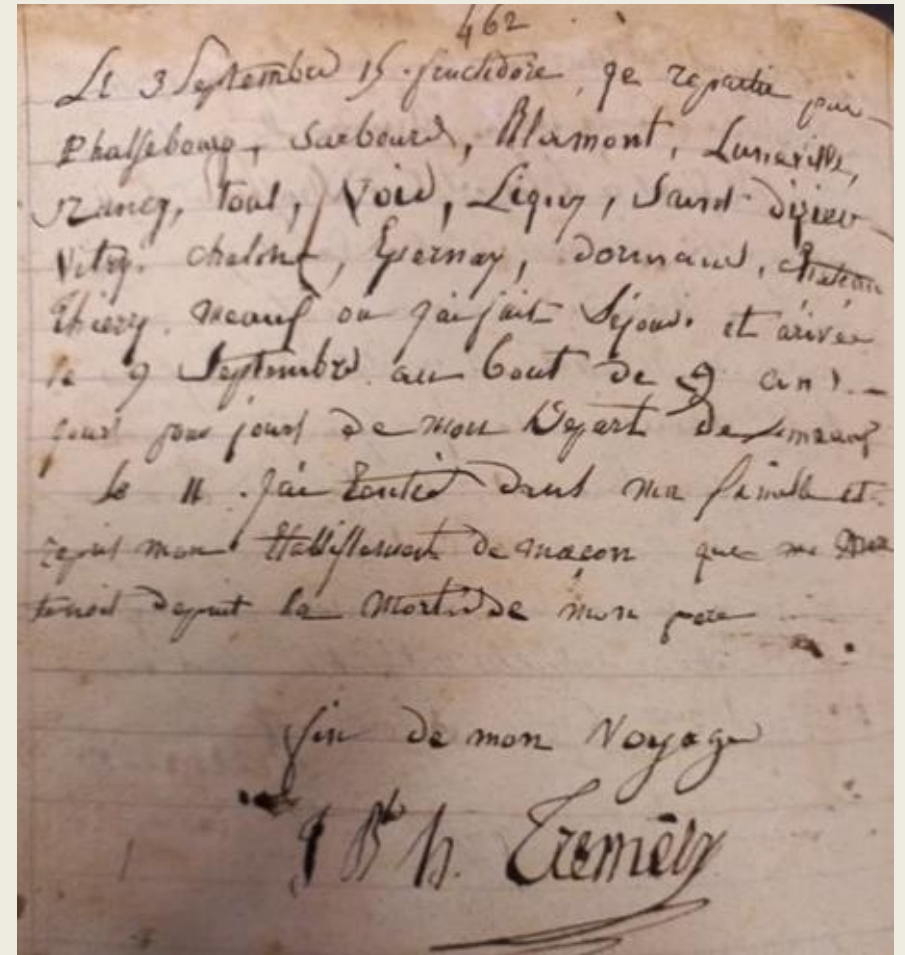 462
Le 3 Septembre 15 fructidore, je repartie par
Phalsebourg, Sarbourd, Blamont, Luneville,
Nancy, Toul, Void, Ligny, Saint dizier
Vitry. chalons, Epernay, Dormans, Chateau
thiery. Meaux ou j'ai fait Séjour. et arivée
le 9 Septembre au bout de 9 ans
jours pour jours de mon Depart de
le 11. j'ai Rentré dans ma famille et
repris mon Etablissement de maçon que ma Mere
tenoit depuit la Mort de mon pere
fin de mon Voyage
J Bte h. Tremery